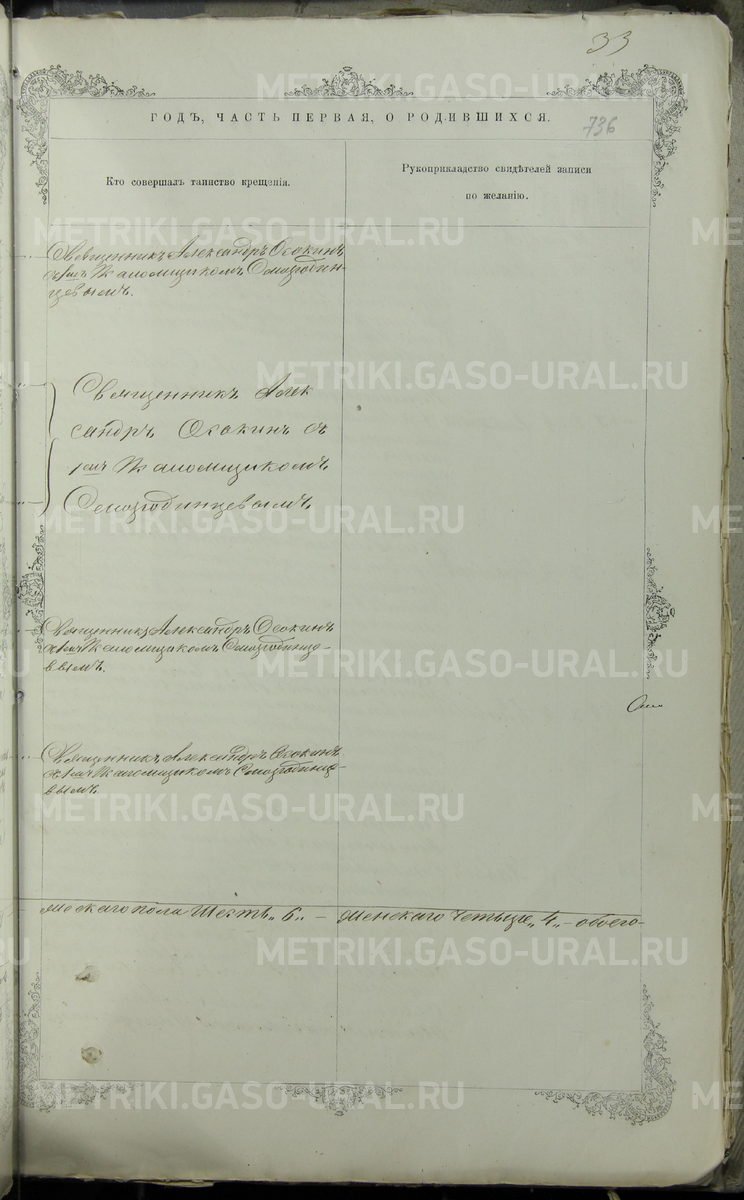 33
736
ГОДЪ, ЧАСТЬ ПЕРВАЯ, О РОДИВШИХСЯ.
Кто совершалъ таинство крещенія.
Рукоприкладство свидѣтелей записи
по желанію.
Священникъ Александръ Ососкинъ
съ Псаломщикомъ
цевымъ.
Священникъ Алек
сандръ Ососкинъ съ
Псаломщикомъ
Священникъ Александръ Ососкинъ
съ Псаломщикомъ
вымъ.
Священникъ Александръ Ососкинъ
съ Псаломщикомъ
вымъ.
мескаго пола Шесть „6„ – Женскаго Четыре „4„ – обоего
METRIKI.GASO-URAL.RU